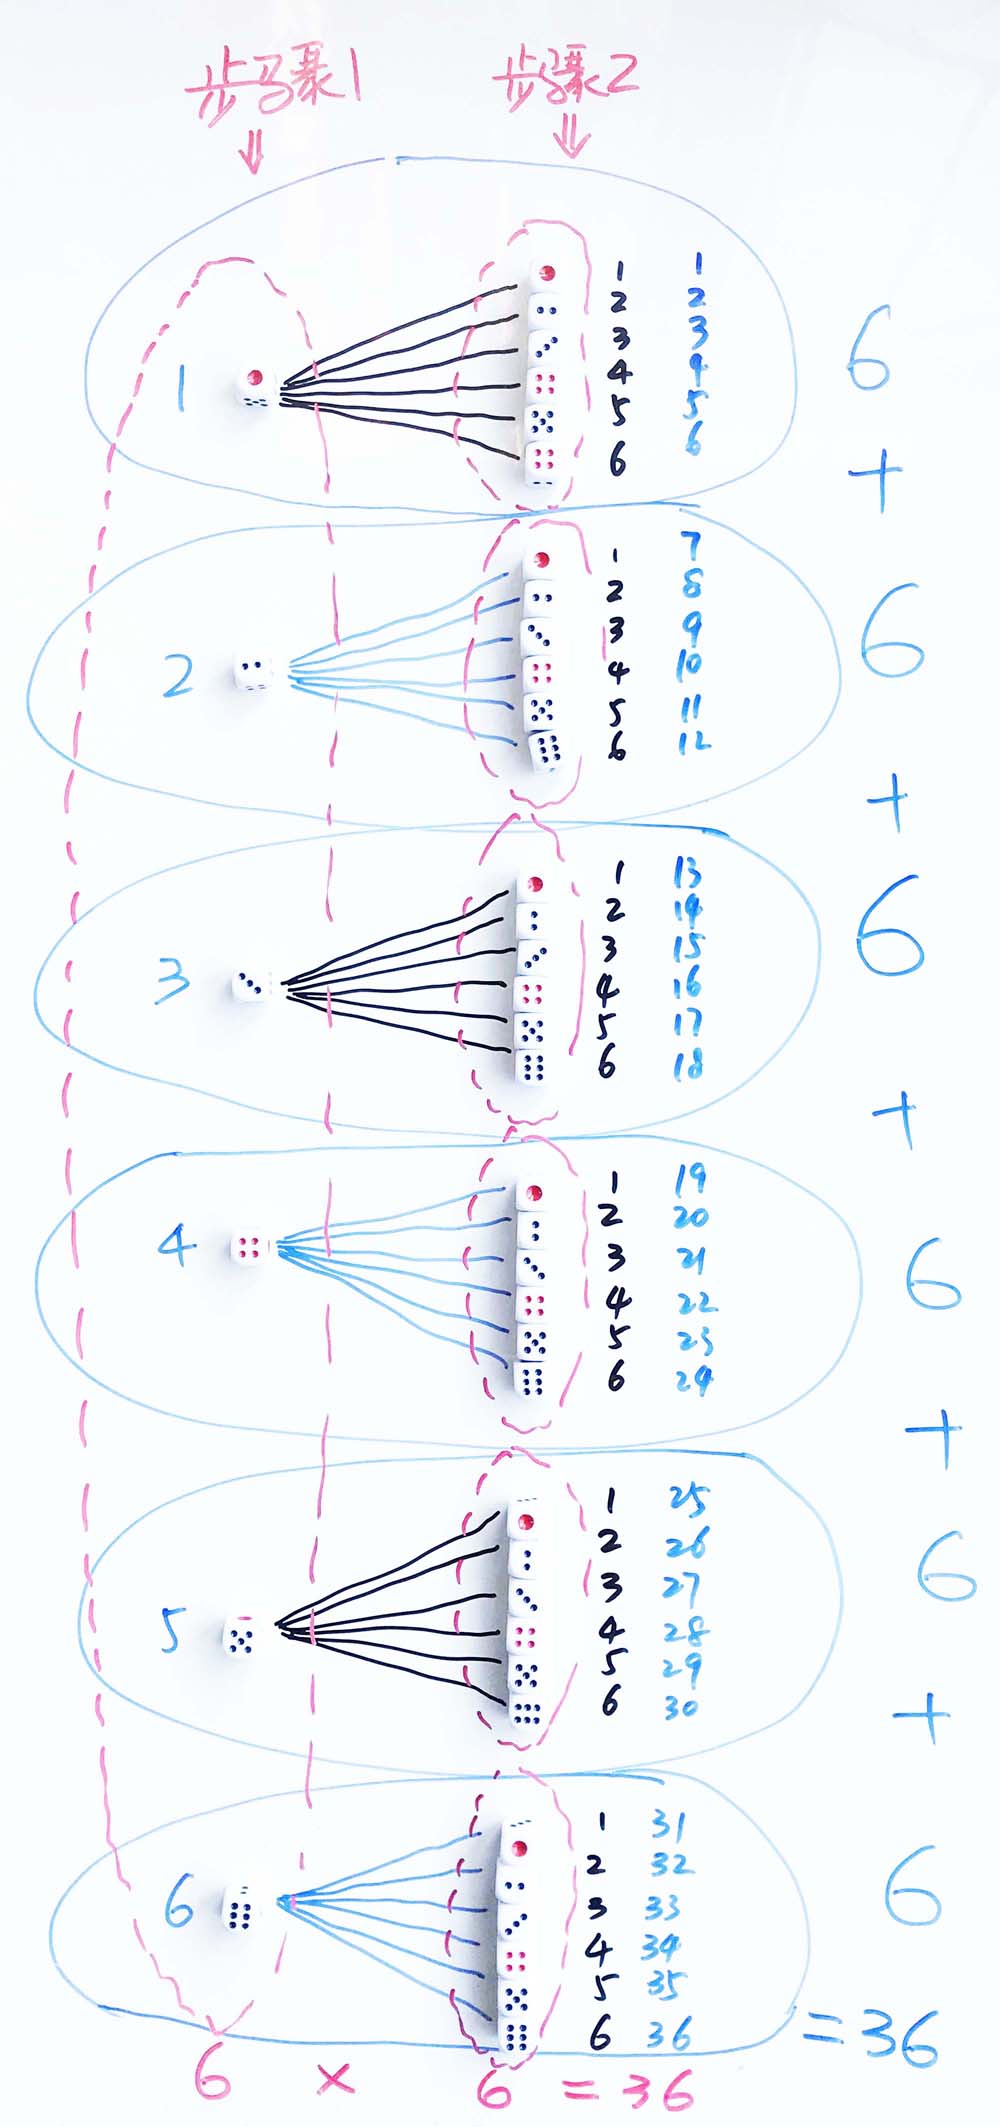 步骤1 步骤2
1 1
2 2
3 3 6
1 4 4
5 5
6 6 +
1 7
2 8
3 9 6
2 4 10
5 11
6 12
+
1 13
2 14 6
3 15
3 4 16
5 17
6 18
+
1 19
2 20
4 3 21 6
4 22
5 23
6 24
+
1 25
2 26
3 27 6
5 4 28
5 29
6 30
+
1 31
2 32
6 3 33 6
4 34
5 35
6 36 =36
6 × 6 = 36